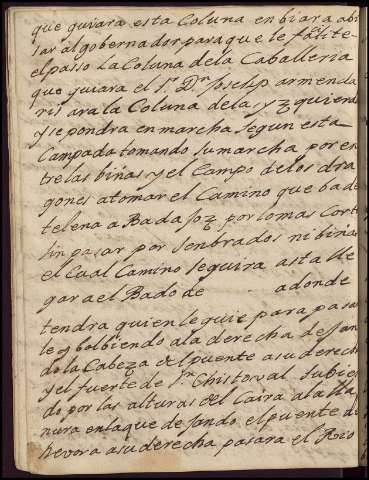 que guiara esta Coluna enbiara abi
sar al gobernador para que le facilite
el passo La Coluna dela Caballeria
que guiara el Sr. Dn. Joseph armenda
ris ara la Coluna dela yzquierda
y se pondra en marcha segun esta
Campada tomando su marcha por en
tre las biñas y el Campo delos dra
gones a tomar el Camino que ba de
telena a Badajoz por lo mas Cort
sin pasar por senbrados ni biñas
el Cual Camino seguira asta lle
gar a el Bado de adonde
tendra quien le guie para pasar
le y bolbiendo ala derecha dejan
do la Cabeza del puente a su derech
y el fuerte de Sn. Christoval subien
do por las alturas del Caira ala lla
nura enla que dejando el puente de
hevora a su derecha pasara el Rio